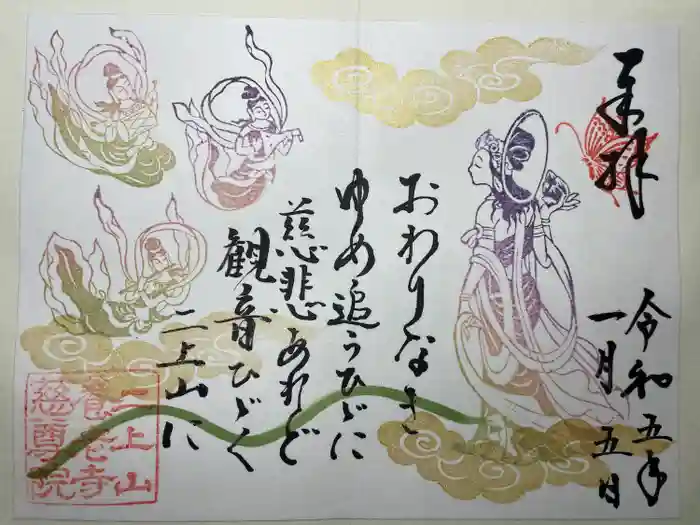 奉拝
令和五年
一月五日
おわりなき
ゆめ追うひゞに
慈悲あれど
観音ひゞく
二上山に
二上山
慈尊院